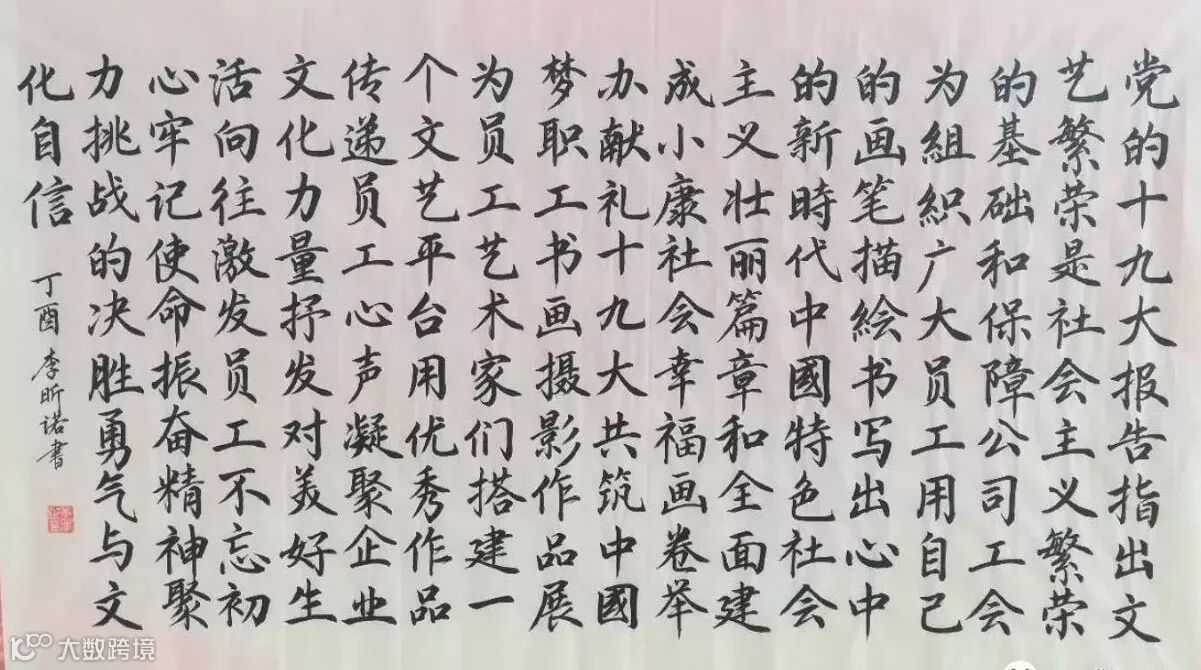 党的十九大报告指出文
艺繁荣是社会主义繁荣
的基础和保障公司工会
为組织广大员工用自己
的画笔描絵书写出心中
的新時代中國特色社会
主义壮丽篇章和全面建
成小康社会幸福画卷举
办献礼十九大共筑中國
梦职工书画摄影作品展
为员工艺术家们搭建一
个文艺平台用优秀作品
传递员工心声凝聚企业
文化力量抒发对美好生
活向往激发员工不忘初
心牢记使命振奋精神聚
力挑战的决胜勇气与文
化自信
丁酉 李昕诺书
大数跨境